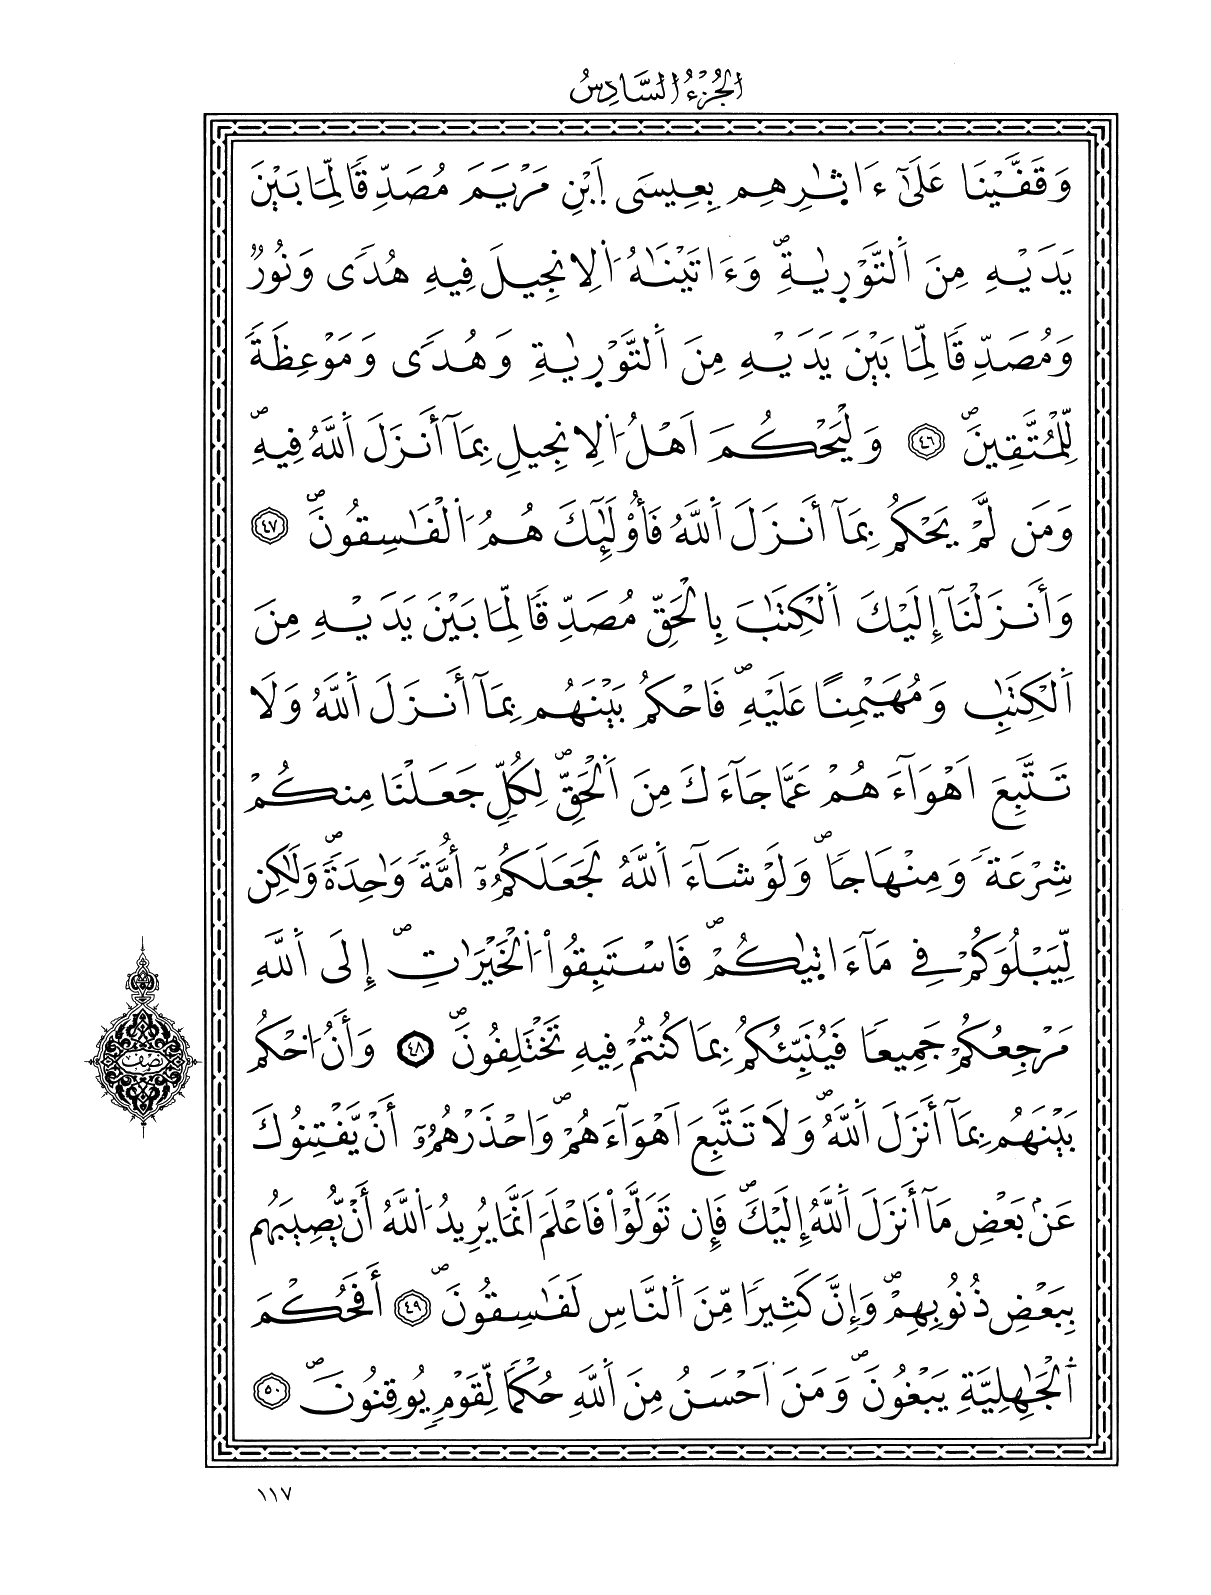 الجزء السادس
وَقَفَّيْنَا عَلَىٰٓ ءَاثٰ۪رِهِم بِعِيسَى اَ۪بْنِ مَرْيَمَ مُصَدِّقاٗ لِّمَا بَيْنَ
يَدَيْهِ مِنَ اَ۬لتَّوْر۪يٰةِۖ وَءَاتَيْنَٰهُ اُ۬لِانجِيلَ فِيهِ هُدىٗ وَنُورٞ
وَمُصَدِّقاٗ لِّمَا بَيْنَ يَدَيْهِ مِنَ اَ۬لتَّوْر۪يٰةِ وَهُدىٗ وَمَوْعِظَةٗ
لِّلْمُتَّقِينَۖ ٤٦ وَلْيَحْكُمَ اَهْلُ اُ۬لِانجِيلِ بِمَآ أَنزَلَ اَ۬للَّهُ فِيهِۖ
وَمَن لَّمْ يَحْكُم بِمَآ أَنزَلَ اَ۬للَّهُ فَأُوْلَٰٓئِكَ هُمُ اُ۬لْفَٰسِقُونَۖ ٤٧
وَأَنزَلْنَآ إِلَيْكَ اَ۬لْكِتَٰبَ بِالْحَقِّ مُصَدِّقاٗ لِّمَا بَيْنَ يَدَيْهِ مِنَ
اَ۬لْكِتَٰبِ وَمُهَيْمِناً عَلَيْهِۖ فَاحْكُم بَيْنَهُم بِمَآ أَنزَلَ اَ۬للَّهُ وَلَا
تَتَّبِعَ اَهْوَآءَهُمْ عَمَّا جَآءَكَ مِنَ اَ۬لْحَقِّۖ لِكُلّٖ جَعَلْنَا مِنكُمْ
شِرْعَةٗ وَمِنْهَاجاٗۖ وَلَوْ شَآءَ اَ۬للَّهُ لَجَعَلَكُمُۥٓ أُمَّةٗ وَٰحِدَةٗۖ وَلَٰكِن
لِّيَبْلُوَكُمْ فِي مَآ ءَات۪يٰكُمْۖ فَاسْتَبِقُواْ اُ۬لْخَيْرَٰتِۖ إِلَى اَ۬للَّهِ
مَرْجِعُكُمْ جَمِيعاٗ فَيُنَبِّئُكُم بِمَا كُنتُمْ فِيهِ تَخْتَلِفُونَۖ ٤٨ وَأَنُ اُ۟حْكُم
بَيْنَهُم بِمَآ أَنزَلَ اَ۬للَّهُۖ وَلَا تَتَّبِعَ اَهْوَآءَهُمْۖ وَاحْذَرْهُمُۥٓ أَنْ يَّفْتِنُوكَ
عَنۢ بَعْضِ مَآ أَنزَلَ اَ۬للَّهُ إِلَيْكَۖ فَإِن تَوَلَّوْاْ فَاعْلَمَ اَنَّمَا يُرِيدُ اُ۬للَّهُ أَنْ يُّصِيبَهُم
بِبَعْضِ ذُنُوبِهِمْۖ وَإِنَّ كَثِيراٗ مِّنَ اَ۬لنَّاسِ لَفَٰسِقُونَۖ ٤٩ أَفَحُكْمَ
اَ۬لْجَٰهِلِيَّةِ يَبْغُونَۖ وَمَنَ اَحْسَنُ مِنَ اَ۬للَّهِ حُكْماٗ لِّقَوْمٖ يُوقِنُونَۖ ٥٠
نصف
١١٧